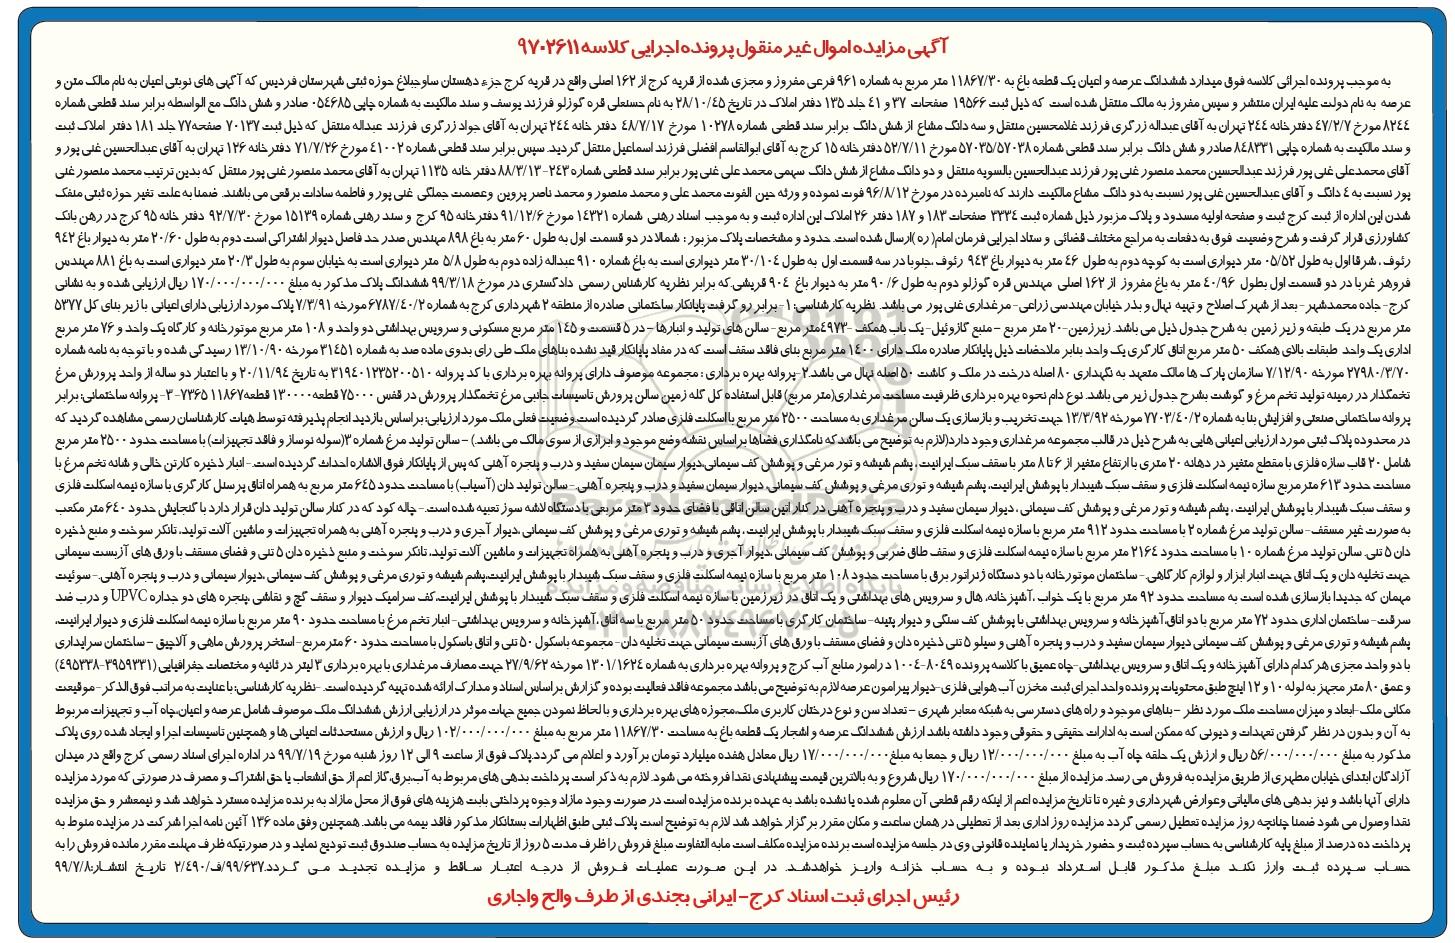 آگهی مزایده اموال غیر منقول پرونده اجرایی کلاسه ۹۷۰۲۶۱۱
به موجب پرونده اجرائی کلاسه فوق میدارد ششدانگ عرصه و اعیان یک قطعه باغ به ۱۱۸۶۷/۳۰ متر مربع به شماره ۹۶۱ فرعی مفروز و مجزی شده از قریه کرج از ۱۶۲ اصلی واقع در قریه کرج جزء دهستان ساوجبلاغ حوزه ثبتی شهرستان فردیس که آگهی های نوبتی اعیان به نام مالک متن و
عرصه به نام دولت علیه ایران منتشر و سپس مفروز به مالک منتقل شده است که ذیل ثبت ۱۹۵۶۶ صفحات ۳۷ و ۴۱ جلد ۱۳۵ دفتر املاک در تاریخ ۲۸/۱۰/۴۵ به نام حسنعلی قره گوزلو فرزند یوسف و سند مالکیت به شماره چاپی ۰۵۴۶۸۵ صادر و شش دانگ مع الواسطه برابر سند قطعی شماره
۸۲۴۴ مورخ ۴۷/۲/۷ دفترخانه ۲۴۴ تهران به آقای عبداله زرگری فرزند غلامحسین منتقل و سه دانگ مشاع از شش دانگ برابر سند قطعی شماره ۱۰۲۷۸ مورخ ۴۸/۷/۱۷ دفتر خانه ۲۴۴ تهران به آقای جواد زرگری فرزند عبداله منتقل که ذیل ثبت ۷۰۱۳۷ صفحه۷۷ جلد ۱۸۱ دفتر املاک ثبت
و سند مالکیت به شماره چاپی ۸۴۸۳۳۱ صادر و شش دانگ برابر سند قطعی شماره ۵۷۰۳۵/۵۷۰۳۸ مورخ ۵۲/۷/۱۱ دفترخانه ۱۵ کرج به آقای ابوالقاسم افضلی فرزند اسماعیل منتقل گردید. سپس برابر سند قطعی شماره ۴۱۰۰۲ مورخ ۷۱/۷/۲۶ دفترخانه ۱۲۶ تهران به آقای عبدالحسین غنی پور و
آقای محمدعلی غنی پور فرزند عبدالحسین محمد منصور غنی پور فرزند عبدالحسین بالسویه منتقل و دو دانگ مشاع از شش دانگ سهمی محمد علی غنی پور برابر سند قطعی شماره ۲۴۳- ۸۸/۳/۱۳ دفتر خانه ۱۱۳۵ تهران به آقای محمد منصور غنی پور منتقل که بدین ترتیب محمد منصور غنی
پور نسبت به ۴ دانگ و آقای عبدالحسین غنی پور نسبت به دو دانگ مشاع مالکیت دارند که نامبرده در مورخ ۹۶/۸/۱۲ فوت نموده و ورثه حین الفوت محمد علی و محمد منصور و محمد ناصر پروین وعصمت جملگی غنی پور و فاطمه سادات برقعی می باشند. ضمنا به علت تغیر حوزه ثبتی منفک
شدن این اداره از ثبت کرج ثبت و صفحه اولیه مسدود و پلاک مزبور ذیل شماره ثبت ۳۳۳۴ صفحات ۱۸۳ و ۱۸۷ دفتر ۲۶ املاک این اداره ثبت و به موجب اسناد رهنی شماره ۱۴۳۲۱ مورخ ۹۱/۱۲/۶ دفترخانه ۹۵ کرج و سند رهنی شماره ۱۵۱۳۹ مورخ ۹۲/۷/۳۰ دفتر خانه ۹۵ کرج در رهن بانک
کشاورزی قرار گرفت و شرح وضعیت فوق به دفعات به مراجع مختلف قضائی و ستاد اجرایی فرمان امام( ره )ارسال شده است. حدود و مشخصات پلاک مزبور : شمالا در دو قسمت اول به طول ۶۰ متر به باغ ۸۹۸ مهندس صدر حد فاصل دیوار اشتراکی است دوم به طول ۲۰/۶۰ متر به دیوار باغ ۹۴۲
رئوف ، شرقا اول به طول ۰۵/۵۲ متر دیواری است به کوچه دوم به طول ۴۶ متر به دیوار باغ ۹۴۳ رئوف ،جنوبا در سه قسمت اول به طول ۳۰/۱۰۴ متر دیواری است به باغ شماره ۹۱۰ عبداله زاده دوم به طول ۵/۸ متر دیواری است به خیابان سوم به طول ۲۰/۳ متر دیواری است به باغ ۸۸۱ مهندس
فروهر غربا در دو قسمت اول بطول ۴۰/۹۶ متر به باغ مفروز از ۱۶۲ اصلی مهندس قره گوزلو دوم به طول ۹۰/۶ متر به دیوار باغ ۹۰۴ قریشی.که برابر نظریه کارشناس رسمی دادگستری در مورخ ۹۹/۳/۱۸ ششدانگ پلاک مذکور به مبلغ ۱۷۰/۰۰۰/۰۰۰/۰۰۰ ریال ارزیابی شده و به نشانی
کرج- جاده محمدشهر- بعد از شهرک اصلاح و تهیه نهال و بذر خیابان مهندسی زراعی- مرغداری غنی پور می باشد. نظریه کارشناسی: ۱- برابر رو گرفت پایانکار ساختمانی صادره از منطقه ۲ شهرداری کرج به شماره ۶۷۸۷/۴۰/۲ مورخه ۷/۳/۹۱ پلاک مورد ارزیابی دارای اعیانی با زیر بنای کل ۵۳۷۷
متر مربع در یک طبقه و زیر زمین به شرح جدول ذیل می باشد. زیرزمین-۲۰ متر مربع – منبع گازوئیل- یک باب همکف -۴۹۷۳متر مربع- سالن های تولید و انبارها –در ۵ قسمت و ۱۴۵ متر مربع مسکونی و سرویس بهداشتی دو واحد و ۱۰۸ متر مربع موتورخانه و کارگاه یک واحد و ۷۶ متر مربع
اداری یک واحد طبقات بالای همکف ۵۰ متر مربع اتاق کارگری یک واحد بنابر ملاحضات ذیل پایانکار صادره ملک دارای ۱۴۰۰ متر مربع بنای فاقد سقف است که در مفاد پایانکار قید نشده بناهای ملک طی رای بدوی ماده صد به شماره ۳۱۴۵۱ مورخه ۱۳/۱۰/۹۰ رسیدگی شده و با توجه به نامه شماره
۲۷۹۸۰/۳/۷۰ مورخه ۷/۱۲/۹۰ سازمان پارک ها مالک متعهد به نگهداری ۸۰ اصله درخت در ملک و کاشت ۵۰ اصله نهال می باشد.۲-پروانه بهره برداری : مجموعه موصوف دارای پروانه بهره برداری با کد پروانه ۳۱۹۴۰۱۲۳۵۲۰۰۵۱۰ به تاریخ ۲۰/۱۱/۹۴ و با اعتبار دو ساله از واحد پرورش مرغ
تخمگذار در زمینه تولید تخم مرغ و گوشت بشرح جدول زیر می باشد. نوع دام نحوه بهره برداری ظرفیت مساحت مرغداری(متر مربع) قابل استفاده کل گله زمین سالن پرورش تاسیسات جانبی مرغ تخمگذار پرورش در قفس ۷۵۰۰۰ قطعه۱۳۰۰۰۰ قطعه۱۱۸۶۷ ۷۳۶۵- ۳- پروانه ساختمانی: برابر
پروانه ساختمانی صنعتی و افزایش بنا به شماره ۷۷۰۳/۴۰/۲ مورخه ۱۳/۳/۹۲ جهت تخریب و بازسازی یک سالن مرغداری به مساحت ۲۵۰۰ متر مربع با اسکلت فلزی صادر گردیده است وضعیت فعلی ملک مورد ارزیابی: براساس بازدید انجام پذیرفته توسط هیات کارشناسان رسمی مشاهده گردید که
در محدوده پلاک ثبتی مورد ارزیابی اعیانی هایی به شرح ذیل در قالب مجموعه مرغداری وجود دارد(لازم به توضیح می باشد که نامگذاری فضاها براساس نقشه وضع موجود و ابرازی از سوی مالک می باشد.) – سالن تولید مرغ شماره ۳(سوله نوساز و فاقد تجهیزات) با مساحت حدود ۲۵۰۰ متر مربع
شامل ۲۰ قاب سازه فلزی با مقطع متغیر در دهانه ۲۰ متری با ارتفاع متغیر از ۶ تا ۸ متر با سقف سبک ایرانیت ، پشم شیشه و تور مرغی و پوشش کف سیمانی،دیوار سیمان سیمان سفید و درب و پنجره آهنی که پس از پایانکار فوق الاشاره احداث گردیده است.- انبار ذخیره کارتن خالی و شانه تخم مرغ با
مساحت حدود ۶۱۳ متر مربع سازه نیمه اسکلت فلزی و سقف سبک شیبدار با پوشش ایرانیت، پشم شیشه و توری مرغی و پوشش کف سیمانی، دیوار سیمان سفید و درب و پنجره آهنی.- سالن تولید دان (آسیاب) با مساحت حدود ۶۴۵ متر مربع به همراه اتاق پرسنل کارگری با سازه نیمه اسکلت فلزی
و سقف سبک شیبدار با پوشش ایرانیت ، پشم شیشه و تور مرغی و پوشش کف سیمانی ، دیوار سیمان سفید و درب و پنجره آهنی در کنار این سالن اتاقی با فضای حدود ۲۰ متر مربعی با دستگاه لاشه سوز تعبیه شده است.- چاله کود که در کنار سالن تولید دان قرار دارد با گنجایش حدود ۶۴۰ متر مکعب
به صورت غیر مسقف- سالن تولید مرغ شماره ۲ با مساحت حدود ۹۱۲ متر مربع با سازه نیمه اسکلت فلزی و سقف سبک شیبدار با پوشش ایرانیت ، پشم شیشه و توری مرغی و پوشش کف سیمانی ،دیوار آجری و درب و پنجره آهنی به همراه تجهیزات و ماشین آلات تولید، تانکر سوخت و منبع ذخیره
دان ۵ تنی. سالن تولید مرغ شماره ۱۰ با مساحت حدود ۲۱۶۴ متر مربع با سازه نیمه اسکلت فلزی و سقف طاق ضربی و پوشش کف سیمانی ،دیوار آجری و درب و پنجره آهنی به همراه تجهیزات و ماشین آلات تولید، تانکر سوخت و منبع ذخیره دان ۵ تنی و فضای مسقف با ورق های آزبست سیمانی
جهت تخلیه دان و یک اتاق جهت انبار ابزار و لوازم کارگاهی.- ساختمان موتورخانه با دو دستگاه ژنراتور برق با مساحت حدود ۱۰۸ متر مربع با سازه نیمه اسکلت فلزی و سقف سبک شیبدار با پوشش ایرانیت،پشم شیشه و توری مرغی و پوشش کف سیمانی ،دیوار سیمانی و درب و پنجره آهنی.- سوئیت
مهمان که جدیدا بازسازی شده است به مساحت حدود ۹۲ متر مربع با یک خواب ،آشپزخانه، هال و سرویس های بهداشتی و یک اتاق در زیرزمین با سازه نیمه اسکلت فلزی و سقف سبک شیبدار با پوشش ایرانیت،کف سرامیک دیوار و سقف گچ و نقاشی ،پنجره های دو جداره UPVC و درب ضد
سرقت- ساختمان اداری حدود ۷۲ متر مربع با دو اتاق،آشپزخانه و سرویس بهداشتی با پوشش کف سنگی و دیوار پتینه- ساختمان کارگری با مساحت حدود ۵۰ متر مربع با سه اتاق ، آشپزخانه و سرویس بهداشتی- انبار تخم مرغ با مساحت حدود ۹۰ متر مربع با سازه نیمه اسکلت فلزی و سقف شیبدار با پوشش ایرانیت،
پشم شیشه و توری مرغی و پوشش کف سیمانی دیوار سیمان سفید و درب و پنجره آهنی و سیلو ۵ تنی ذخیره دان و فضای مسقف با ورق های آزبست سیمانی جهت تخلیه دان- مجموعه باسکول ۵۰ تنی و اتاق باسکول با مساحت حدود ۶۰ متر مربع- استخر پرورش ماهی و آلاچیق – ساختمان سرایداری
با دو واحد مجزی هر کدام دارای آشپزخانه و یک اتاق و سرویس بهداشتی-چاه عمیق با کلاسه پرونده ۸۰۴۹-۱۰۰۴ د رامور منابع آب کرج و پروانه بهره برداری به شماره ۱۳۰۱/۱۶۲۴ مورخه ۲۷/۹/۶۲ جهت مصارف مرغداری با بهره برداری ۳ لیتر در ثانیه و مختصات جغرافیایی (۳۹۵۹۳۳۱-۴۹۵۳۳۸)
و عمق ۸۰ متر مجهز به لوله ۱۰ و ۱۲ اینچ طبق محتویات پرونده واحد اجرای ثبت مخزن آب هوایی فلزی-دیوار پیرامون عرصه لازم به توضیح می باشد مجموعه فاقد فعالیت بوده و گزارش براساس اسناد و مدارک ارائه شده تهیه گردیده است. -نظریه کارشناسی: با عنایت به مراتب فوق الذکر- موقعیت
مکانی ملک-ابعاد و میزان مساحت ملک مورد نظر –بناهای موجود و راه های دسترسی به شبکه معابر شهری – تعداد سن و نوع درختان کاربری ملک،مجوزه های بهره برداری و با لحاظ نمودن جمیع جهات موثر در ارزیابی ارزش ششدانگ ملک موصوف شامل عرصه و اعیان،چاه آب و تجهیزات مربوط
به آن و بدون در نظر گرفتن تعهدات و دیونی که ممکن است به ادارات حقیقی و حقوقی وجود داشته باشد ارزش ششدانگ عرصه و اشجار یک قطعه باغ به مساحت ۱۱۸۶۷/۳۰ متر مربع به مبلغ ۱۰۲/۰۰۰/۰۰۰/۰۰۰ ریال و ارزش مستحدثات اعیانی ها و همچنین تاسیسات اجرا و ایجاد شده روی پلاک
مذکور به مبلغ ۵۶/۰۰۰/۰۰۰/۰۰۰ ریال و ارزش یک حلقه چاه آب به مبلغ ۱۲/۰۰۰/۰۰۰/۰۰۰ ریال و جمعا به مبلغ۱۷/۰۰۰/۰۰۰/۰۰۰ ریال معادل هفده میلیارد تومان برآورد و اعلام می گردد.پلاک فوق از ساعت ۹ الی ۱۲ روز شنبه مورخ ۹۹/۷/۱۹ در اداره اجرای اسناد رسمی کرج واقع در میدان
آزادگان ابتدای خیابان مطهری از طریق مزایده به فروش می رسد. مزایده از مبلغ ۱۷۰/۰۰۰/۰۰۰/۰۰۰ ریال شروع و به بالاترین قیمت پیشنهادی نقدا فروخته می شود. لازم به ذکر است پرداخت بدهی های مربوط به آب،برق،گاز اعم از حق انشعاب یا حق اشتراک و مصرف در صورتی که مورد مزایده
دارای آنها باشد و نیز بدهی های مالیاتی وعوارض شهرداری و غیره تا تاریخ مزایده اعم از اینکه رقم قطعی آن معلوم شده یا نشده باشد به عهده برنده مزایده است در صورت وجود مازاد وجوه پرداختی بابت هزینه های فوق از محل مازاد به برنده مزایده مسترد خواهد شد و نیمعشر و حق مزایده
نقدا وصول می شود ضمنا چنانچه روز مزایده تعطیل رسمی گردد مزایده روز اداری بعد از تعطیلی در همان ساعت و مکان مقرر برگزار خواهد شد لازم به توضیح است پلاک ثبتی طبق اظهارات بستانکار مذکور فاقد بیمه می باشد. همچنین وفق ماده ۱۳۶ آئین نامه اجرا شرکت در مزایده منوط به
پرداخت ده درصد از مبلغ پایه کارشناسی به حساب سپرده ثبت و حضور خریدار یا نماینده قانونی وی در جلسه مزایده است برنده مزایده مکلف است مابه التفاوت مبلغ فروش را ظرف مدت ۵ روز از تاریخ مزایده به حساب صندوق ثبت تودیع نماید و در صورتیکه ظرف مهلت مقرر مانده فروش را به
حساب سپرده ثبت وارز نکند مبلغ مذکور قابل استرداد نبوده و به حساب خزانه واریز خواهدشد. در این صورت عملیات فروش از درجه اعتبار ساقط و مزایده تجدید می گردد.۹۹/۶۳۷/ف/۲/۴۹۰ تاریخ انتشار:۹۹/۷/۸
رئیس اجرای ثبت اسناد کرج- ایرانی بجندی از طرف والح واجاری
ParsNamadData
پایگاه اطلاع رسانی مناقصه و مزایده
۰۲۱-۸۸۳۴۹۶۷۰-۵